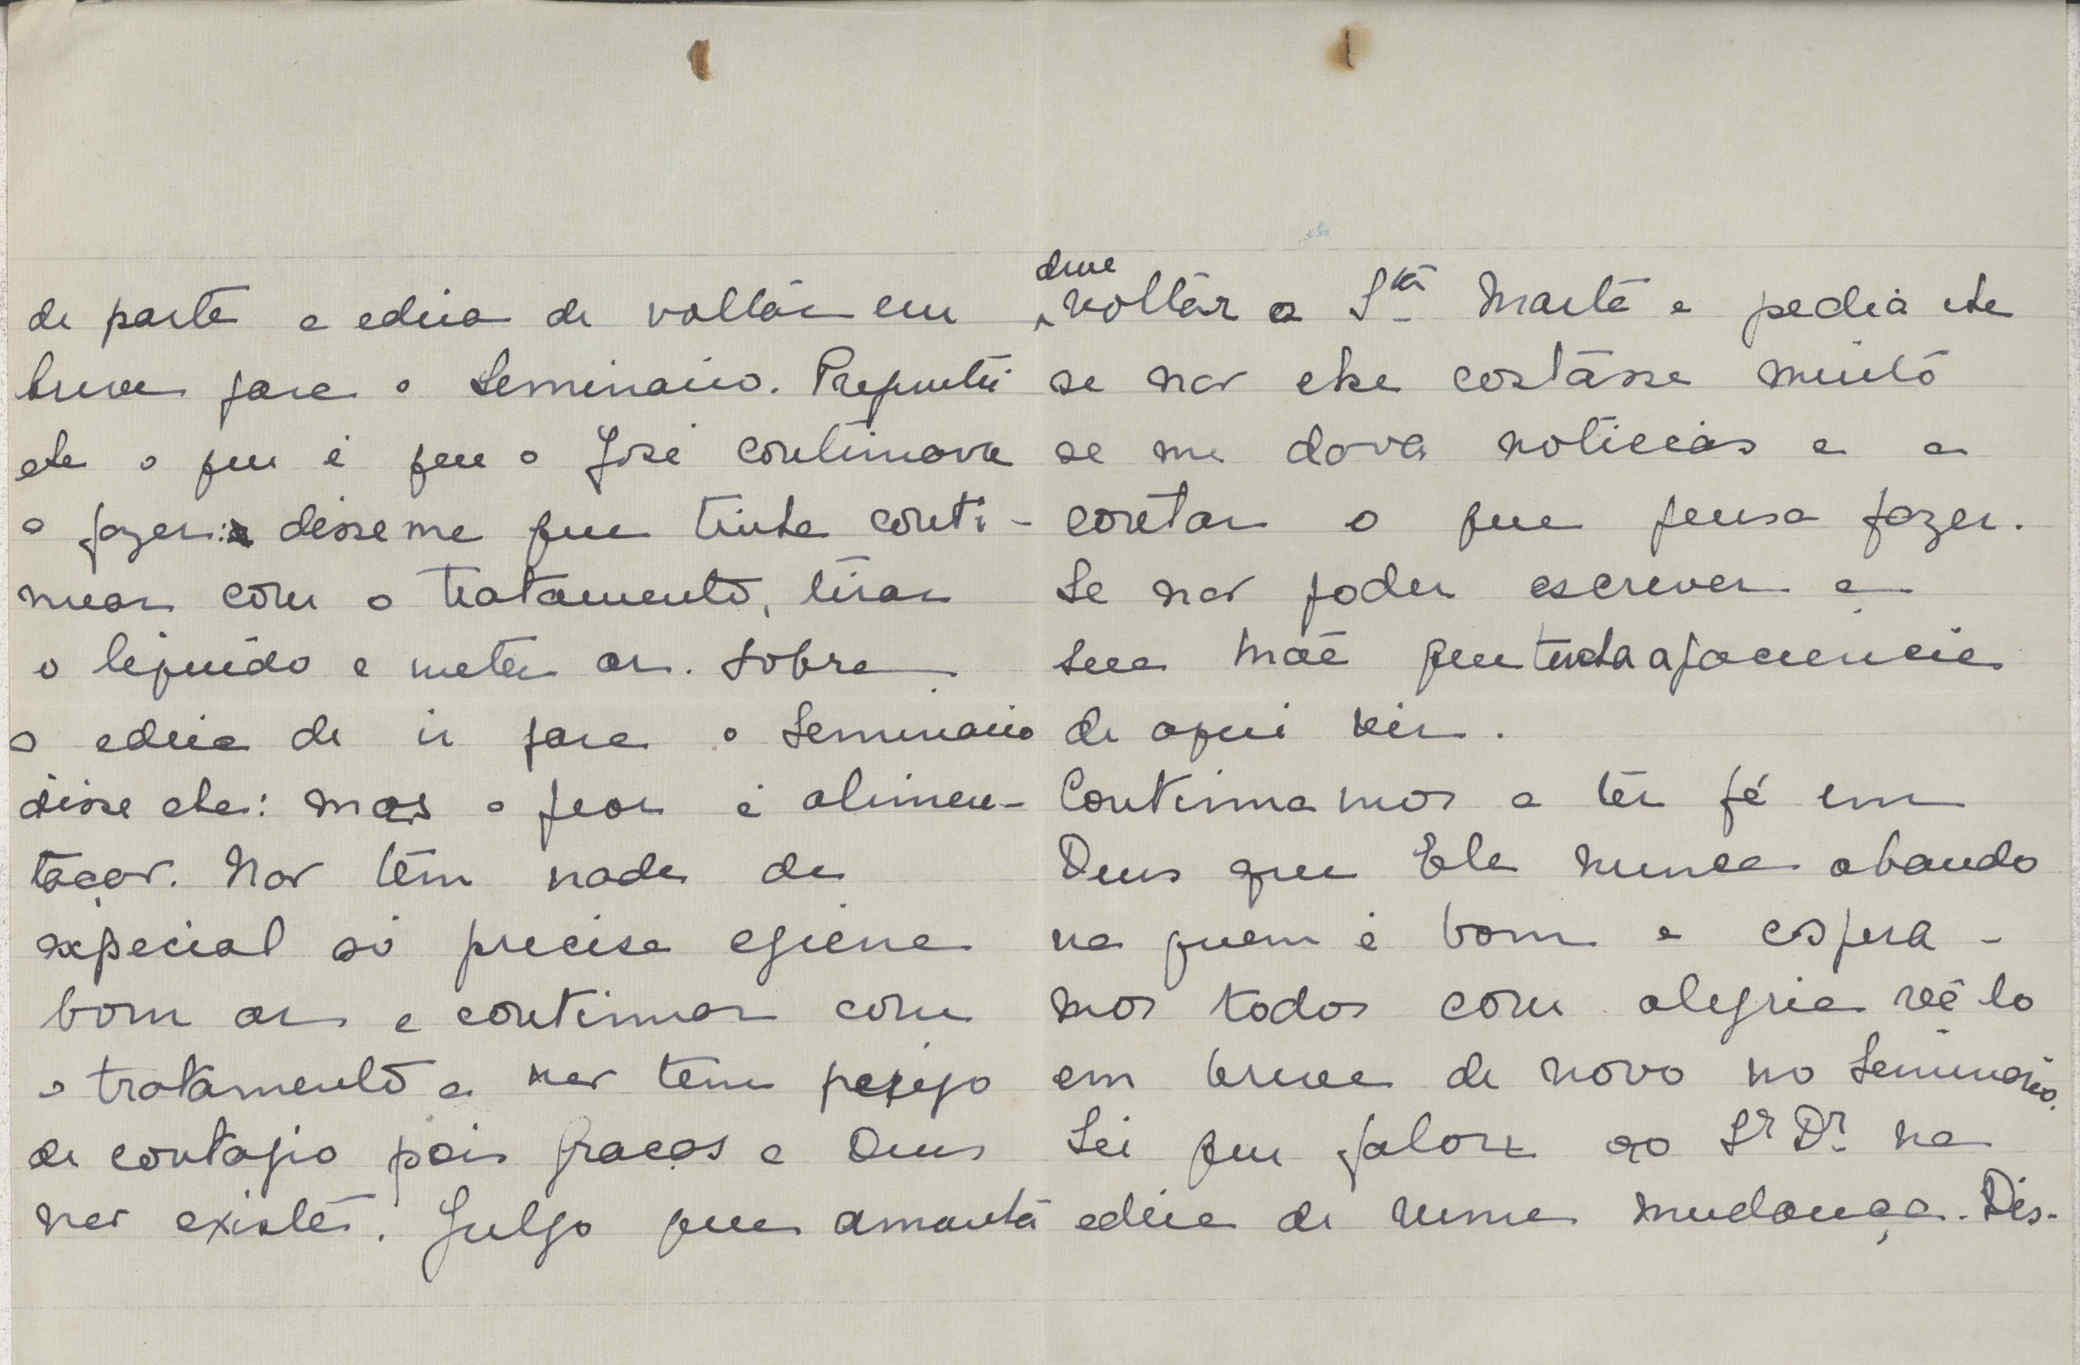 de parte a edeia de voltár em
breve para o Seminario. Preguntei
ele o que é que o José continuava
a fazer: disse me que tinha conti-
nuar com o tratamento, tirar
o liquido e meter ar. Sobre
a edeia de ir para o Seminário
disse ele: mas o pior é alimen-
taçáo. Náo têm nada de
especial só precisa egiene
bom ar e continuar com
o tratamento e náo tem perigo
de contagio pois graças a Deus
náo existe. Julgo que amanhá
deve
voltár a Sta Marta e pedia ele
se náo ele costásse muito
se me dava noticias e a
contar o que pensa fazer.
Se náo poder escrever a
sua Máe que tenha a paciencia
de aqui vir.
Continuamos a têr fé em
Deus que Ele nunca abando
na quem é bom e espera-
mos todos com alegria vê lo
em breve de novo no Seminário.
Sei que falou ao Sr Dr. na
edeia de uma mudança. Dis-